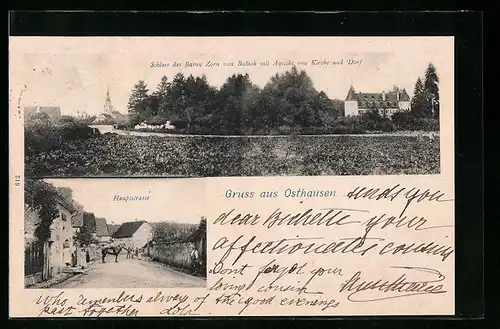 Schloss des Baron Zorn von Bulach mit Ansicht von Kirche und Dorf
612
Hauptstrasse
Gruss aus Osthausen sends you
dear Bichette your
affectionate cousin
Dont forget your
loving cousin
Who remembers always of the good evenings
past together Lola